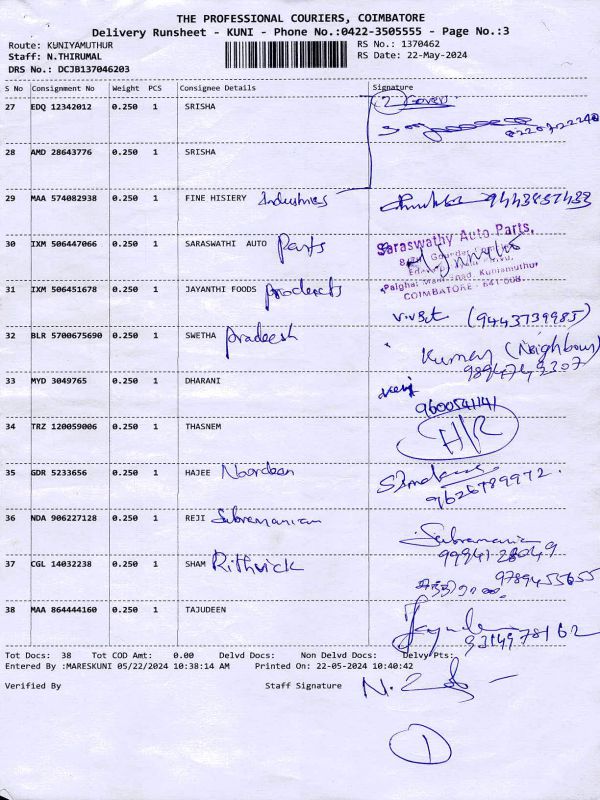 THE PROFESSIONAL COURIERS, COIMBATORE
Delivery Runsheet - KUNI - Phone No.:0422-3505555 - Page No.:3
Route: KUNIYAMUTHUR RS No.: 1370462
Staff: N.THIRUMAL RS Date: 22-May-2024
DRS No.: DCJB137046203
S No Consignment No Weight PCS Consignee Details Signature
27 EDQ 12342012 0.250 1 SRISHA 2 Cover
28 AMD 28643776 0.250 1 SRISHA
29 MAA 574082938 0.250 1 FINE HISIERY Industries
30 IXM 506447066 0.250 1 SARASWATHI AUTO Parts Saraswathy Auto Parts,
Palghat Main Road, Kuniamuthur
COIMBATORE - 641 008.
31 IXM 506451678 0.250 1 JAYANTHI FOODS Products
(9443739985)
32 BLR 5700675690 0.250 1 SWETHA Pradeesh Kumar (Neighbour)
33 MYD 3049765 0.250 1 DHARANI
9600541141
34 TRZ 120059006 0.250 1 THASNEM H/R
35 GDR 5233656 0.250 1 HAJEE Noordeen
9626789972
36 NDA 906227128 0.250 1 REJI Subramanian Subramania
99941-28049
37 CGL 14032238 0.250 1 SHAM Rithvick 9789455655
38 MAA 864444160 0.250 1 TAJUDEEN
Tot Docs: 38 Tot COD Amt: 0.00 Delvd Docs: Non Delvd Docs: Delvy Pts:
Entered By :MARESKUNI 05/22/2024 10:38:14 AM Printed On: 22-05-2024 10:40:42
Verified By Staff Signature
1